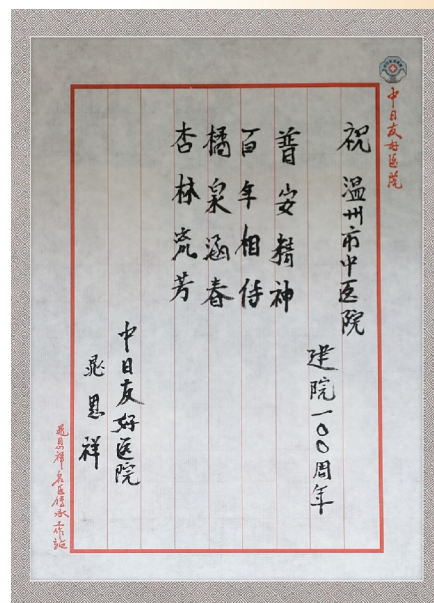 中日友好医院
祝 温州市中医院
建院一〇〇周年
普安精神
百年相传
橘泉涵春
杏林流芳
中日友好医院
晁恩祥
晁恩祥名医传承工作站